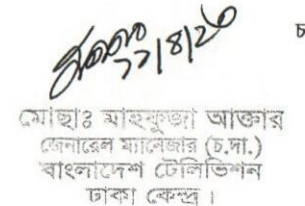 ১১/৪/২৩
চ
মোছাঃ মাহফুজা আক্তার
জেনারেল ম্যানেজার (চ.দা.)
বাংলাদেশ টেলিভিশন
ঢাকা কেন্দ্র।